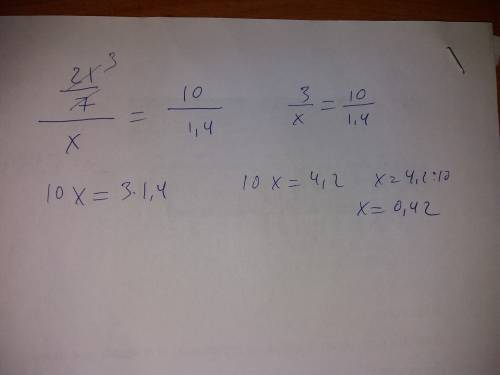 21³/7 / x = 10 / 1,4 3 / x = 10 / 1,4
10 x = 3·1,4 10 x = 4,2 x = 4,2:10
x = 0,42